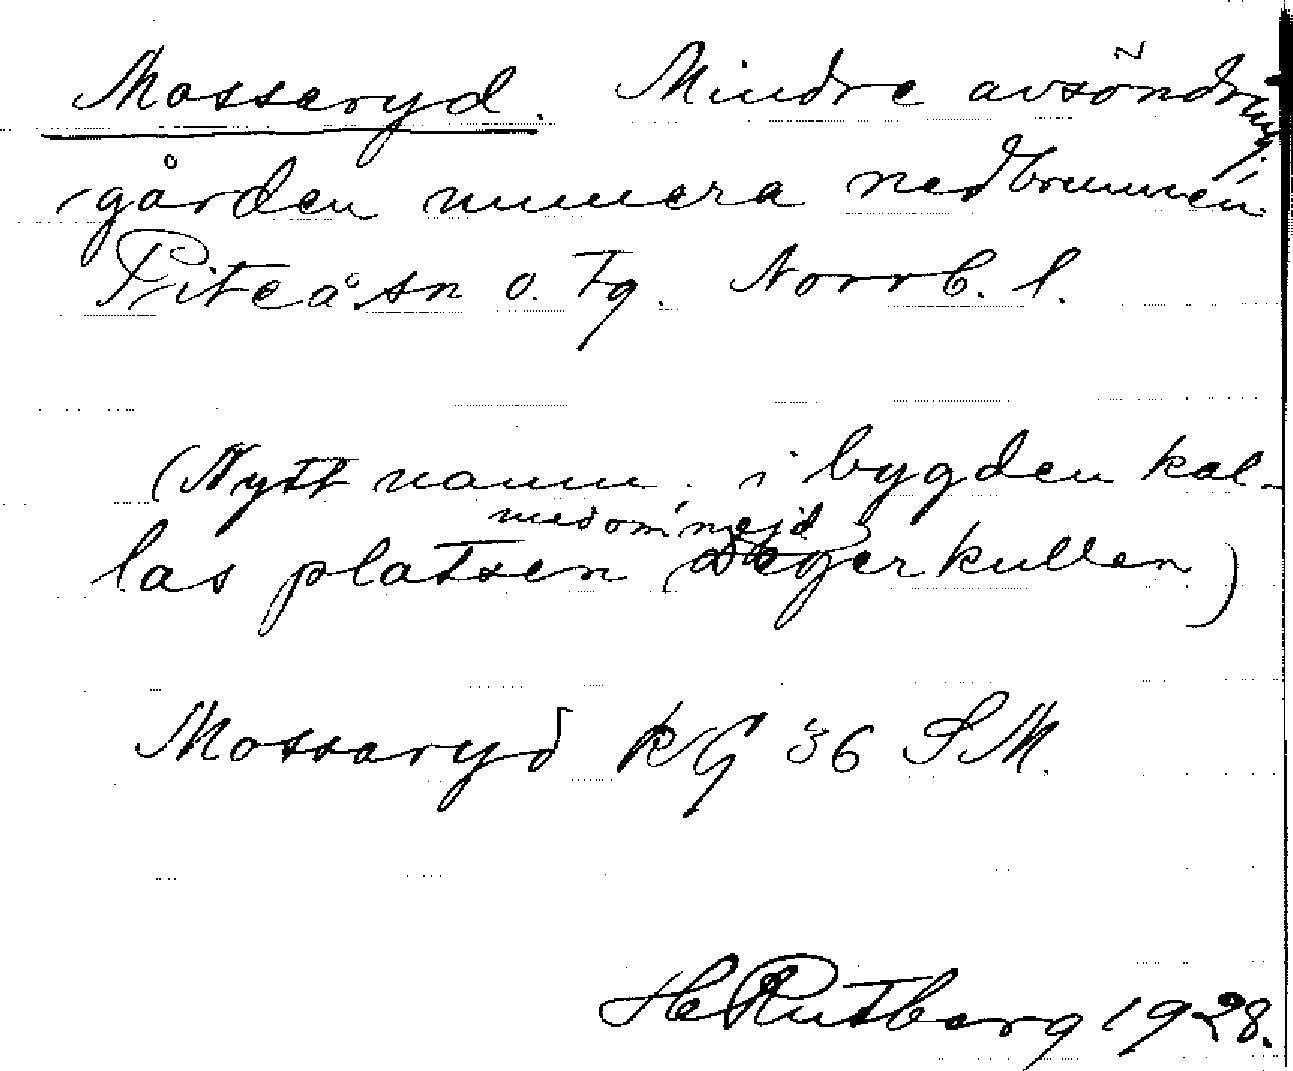 Mossaryd. Mindre avsöndring.
gården numera nedbrunnen
Piteå sn o. tg. Norrb. l.
(Nytt namn. i bygden kal-
med omnejd
las platsen Degerkullen)
Mossaryd KG 36 S.M.
H Rutberg 1928.